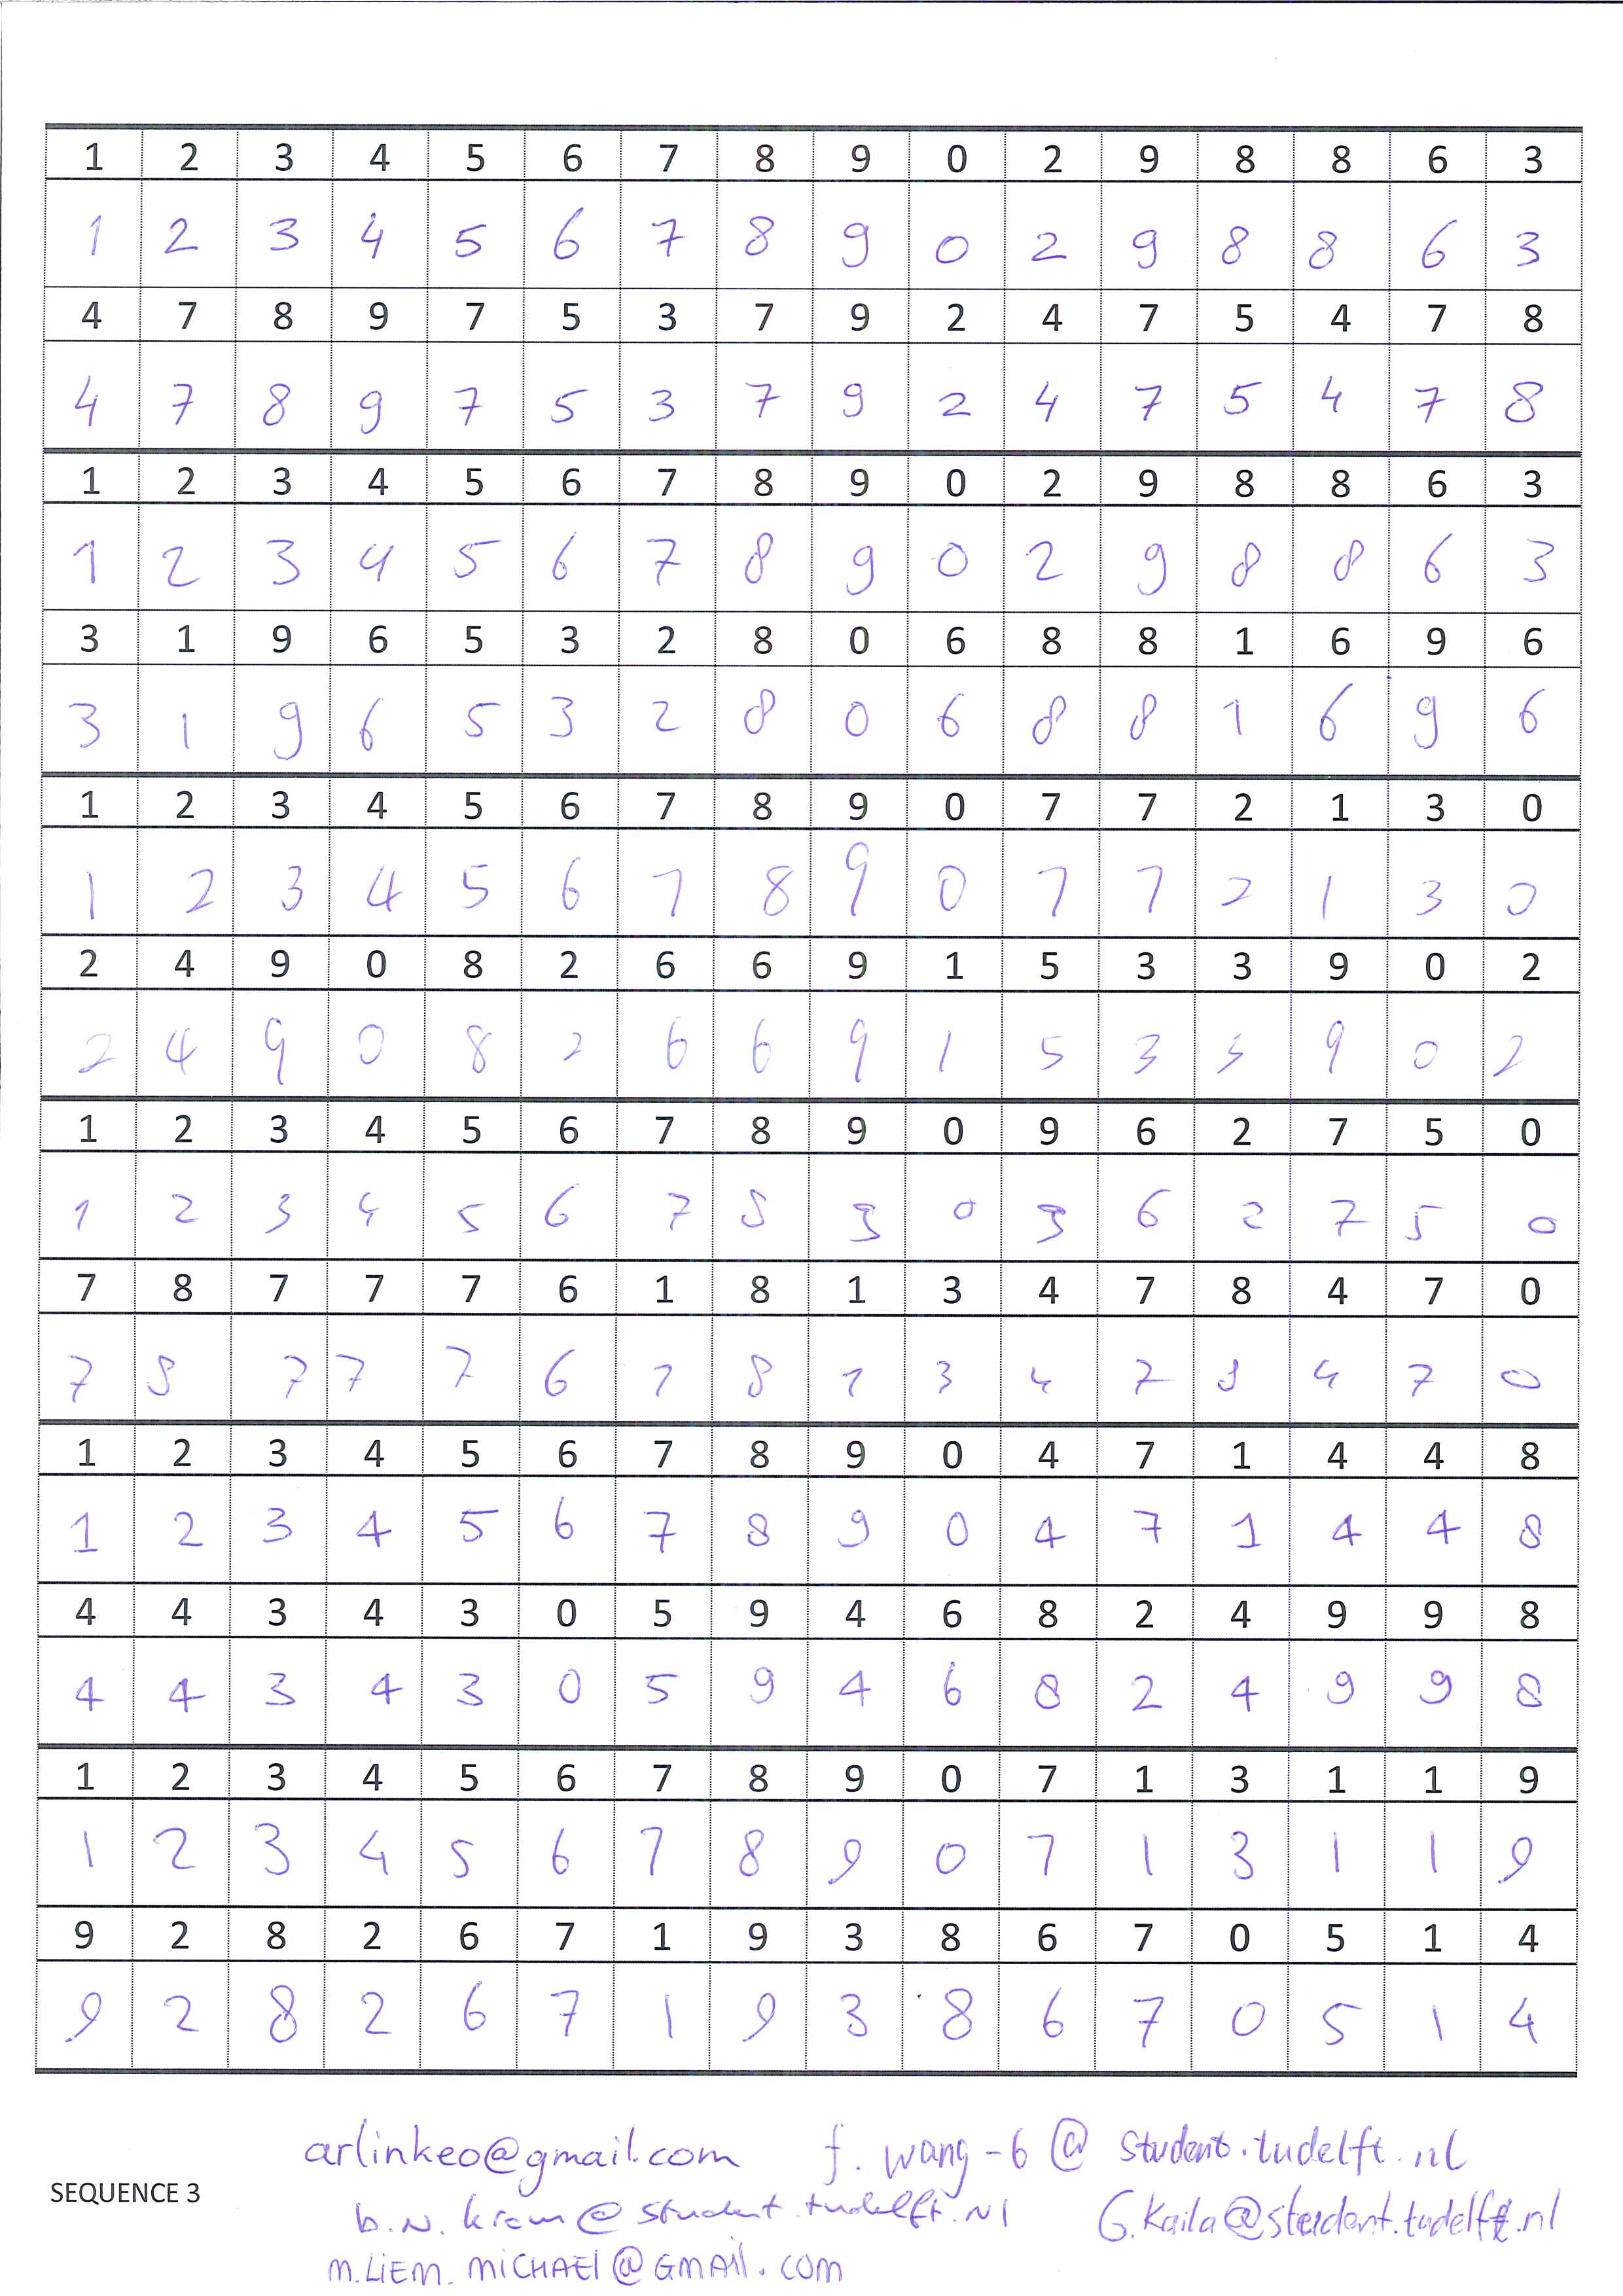 1 2 3 4 5 6 7 8 9 0 2 9 8 8 6 3
1 2 3 4 5 6 7 8 9 0 2 9 8 8 6 3
4 7 8 9 7 5 3 7 9 2 4 7 5 4 7 8
4 7 8 9 7 5 3 7 9 2 4 7 5 4 7 8
1 2 3 4 5 6 7 8 9 0 2 9 8 8 6 3
1 2 3 4 5 6 7 8 9 0 2 9 8 8 6 3
3 1 9 6 5 3 2 8 0 6 8 8 1 6 9 6
3 1 9 6 5 3 2 8 0 6 8 8 1 6 9 6
1 2 3 4 5 6 7 8 9 0 7 7 2 1 3 0
1 2 3 4 5 6 7 8 9 0 7 7 2 1 3 0
2 4 9 0 8 2 6 6 9 1 5 3 3 9 0 2
2 4 9 0 8 2 6 6 9 1 5 3 3 9 0 2
1 2 3 4 5 6 7 8 9 0 9 6 2 7 5 0
1 2 3 4 5 6 7 8 9 0 9 6 2 7 5 0
7 8 7 7 7 6 1 8 1 3 4 7 8 4 7 0
7 8 7 7 7 6 1 8 1 3 4 7 8 4 7 0
1 2 3 4 5 6 7 8 9 0 4 7 1 4 4 8
1 2 3 4 5 6 7 8 9 0 4 7 1 4 4 8
4 4 3 4 3 0 5 9 4 6 8 2 4 9 9 8
4 4 3 4 3 0 5 9 4 6 8 2 4 9 9 8
1 2 3 4 5 6 7 8 9 0 7 1 3 1 1 9
1 2 3 4 5 6 7 8 9 0 7 1 3 1 1 9
9 2 8 2 6 7 1 9 3 8 6 7 0 5 1 4
9 2 8 2 6 7 1 9 3 8 6 7 0 5 1 4
arlinkeo@gmail.com f.wang-6@student.tudelft.nl
SEQUENCE 3
b.N.kram@student.tudelft.Nl G.Kaila@student.tudelft.nl
M.LIEM.MICHAEl@GMAIl.COM